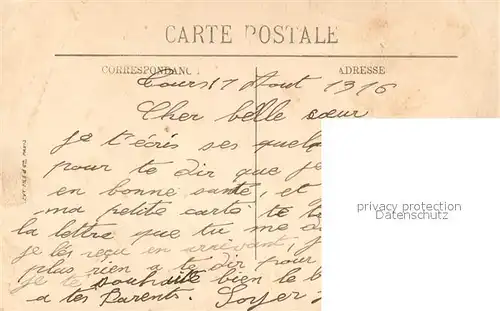 CARTE POSTALE
CORRESPONDANC
ADRESSE
Tours 17 Aout 1916
Cher belle sœur
je t'écris ses quelq
pour te dir que je
en bonne santé, et
ma petite carte te
la lettre que tu me a
je les reçu en arrivant,
plus rien a te dir pour
je te souhaite bien le b
a tes Parents. Soyer
privacy protection
Datenschutz